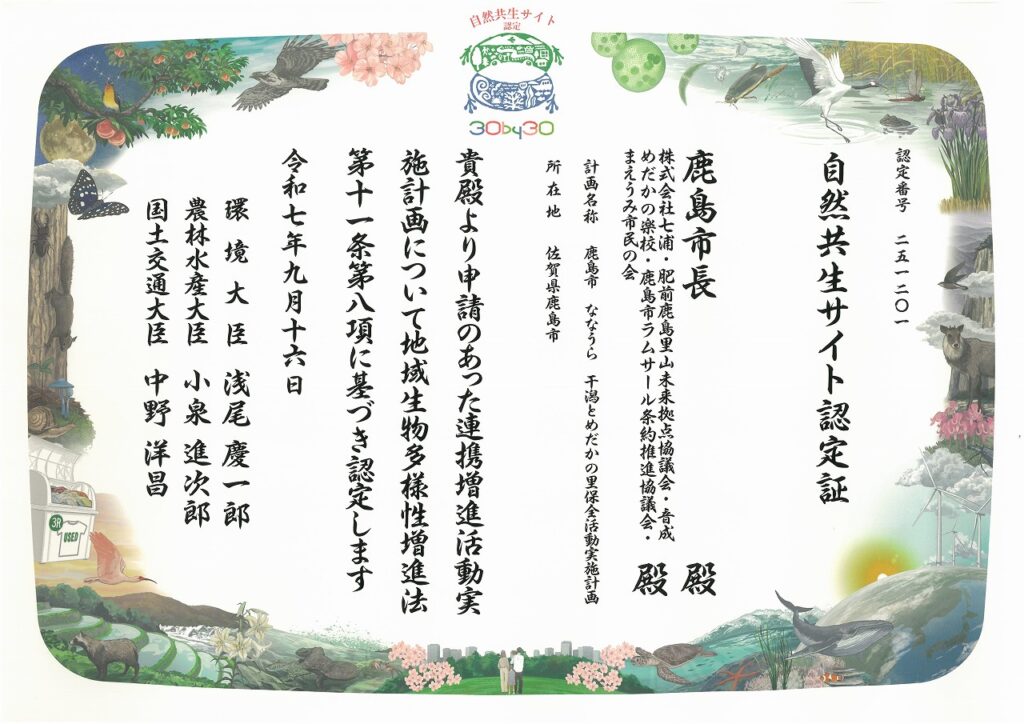 自然共生サイト
認定
30by30
認定番号 二五一二〇一
自然共生サイト認定証
鹿島市長 殿
株式会社七浦・肥前鹿島里山未来拠点協議会・音成
めだかの楽校・鹿島市ラムサール条約推進協議会・
まえうみ市民の会 殿
計画名称 鹿島市 ななうら 干潟とめだかの里保全活動実施計画
所在地 佐賀県鹿島市
貴殿より申請のあった連携増進活動実
施計画について地域生物多様性増進法
第十一条第八項に基づき認定します
令和七年九月十六日
環境大臣 浅尾慶一郎
農林水産大臣 小泉進次郎
国土交通大臣 中野洋昌
3R
USED